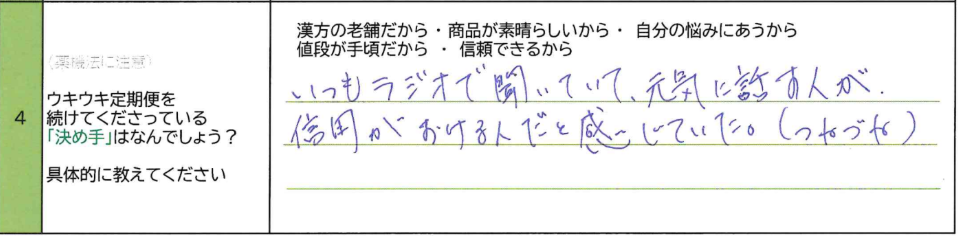 漢方の老舗だから・商品が素晴らしいから・自分の悩みにあうから
値段が手頃だから ・ 信頼できるから
(薬機法に注意)
4
ウキウキ定期便を
続けてくださっている
「決め手」はなんでしょう？
具体的に教えてください
いつもラジオで聞いていて、元気に話す人が、
信用がおける人だと感じていた。(つねづね)